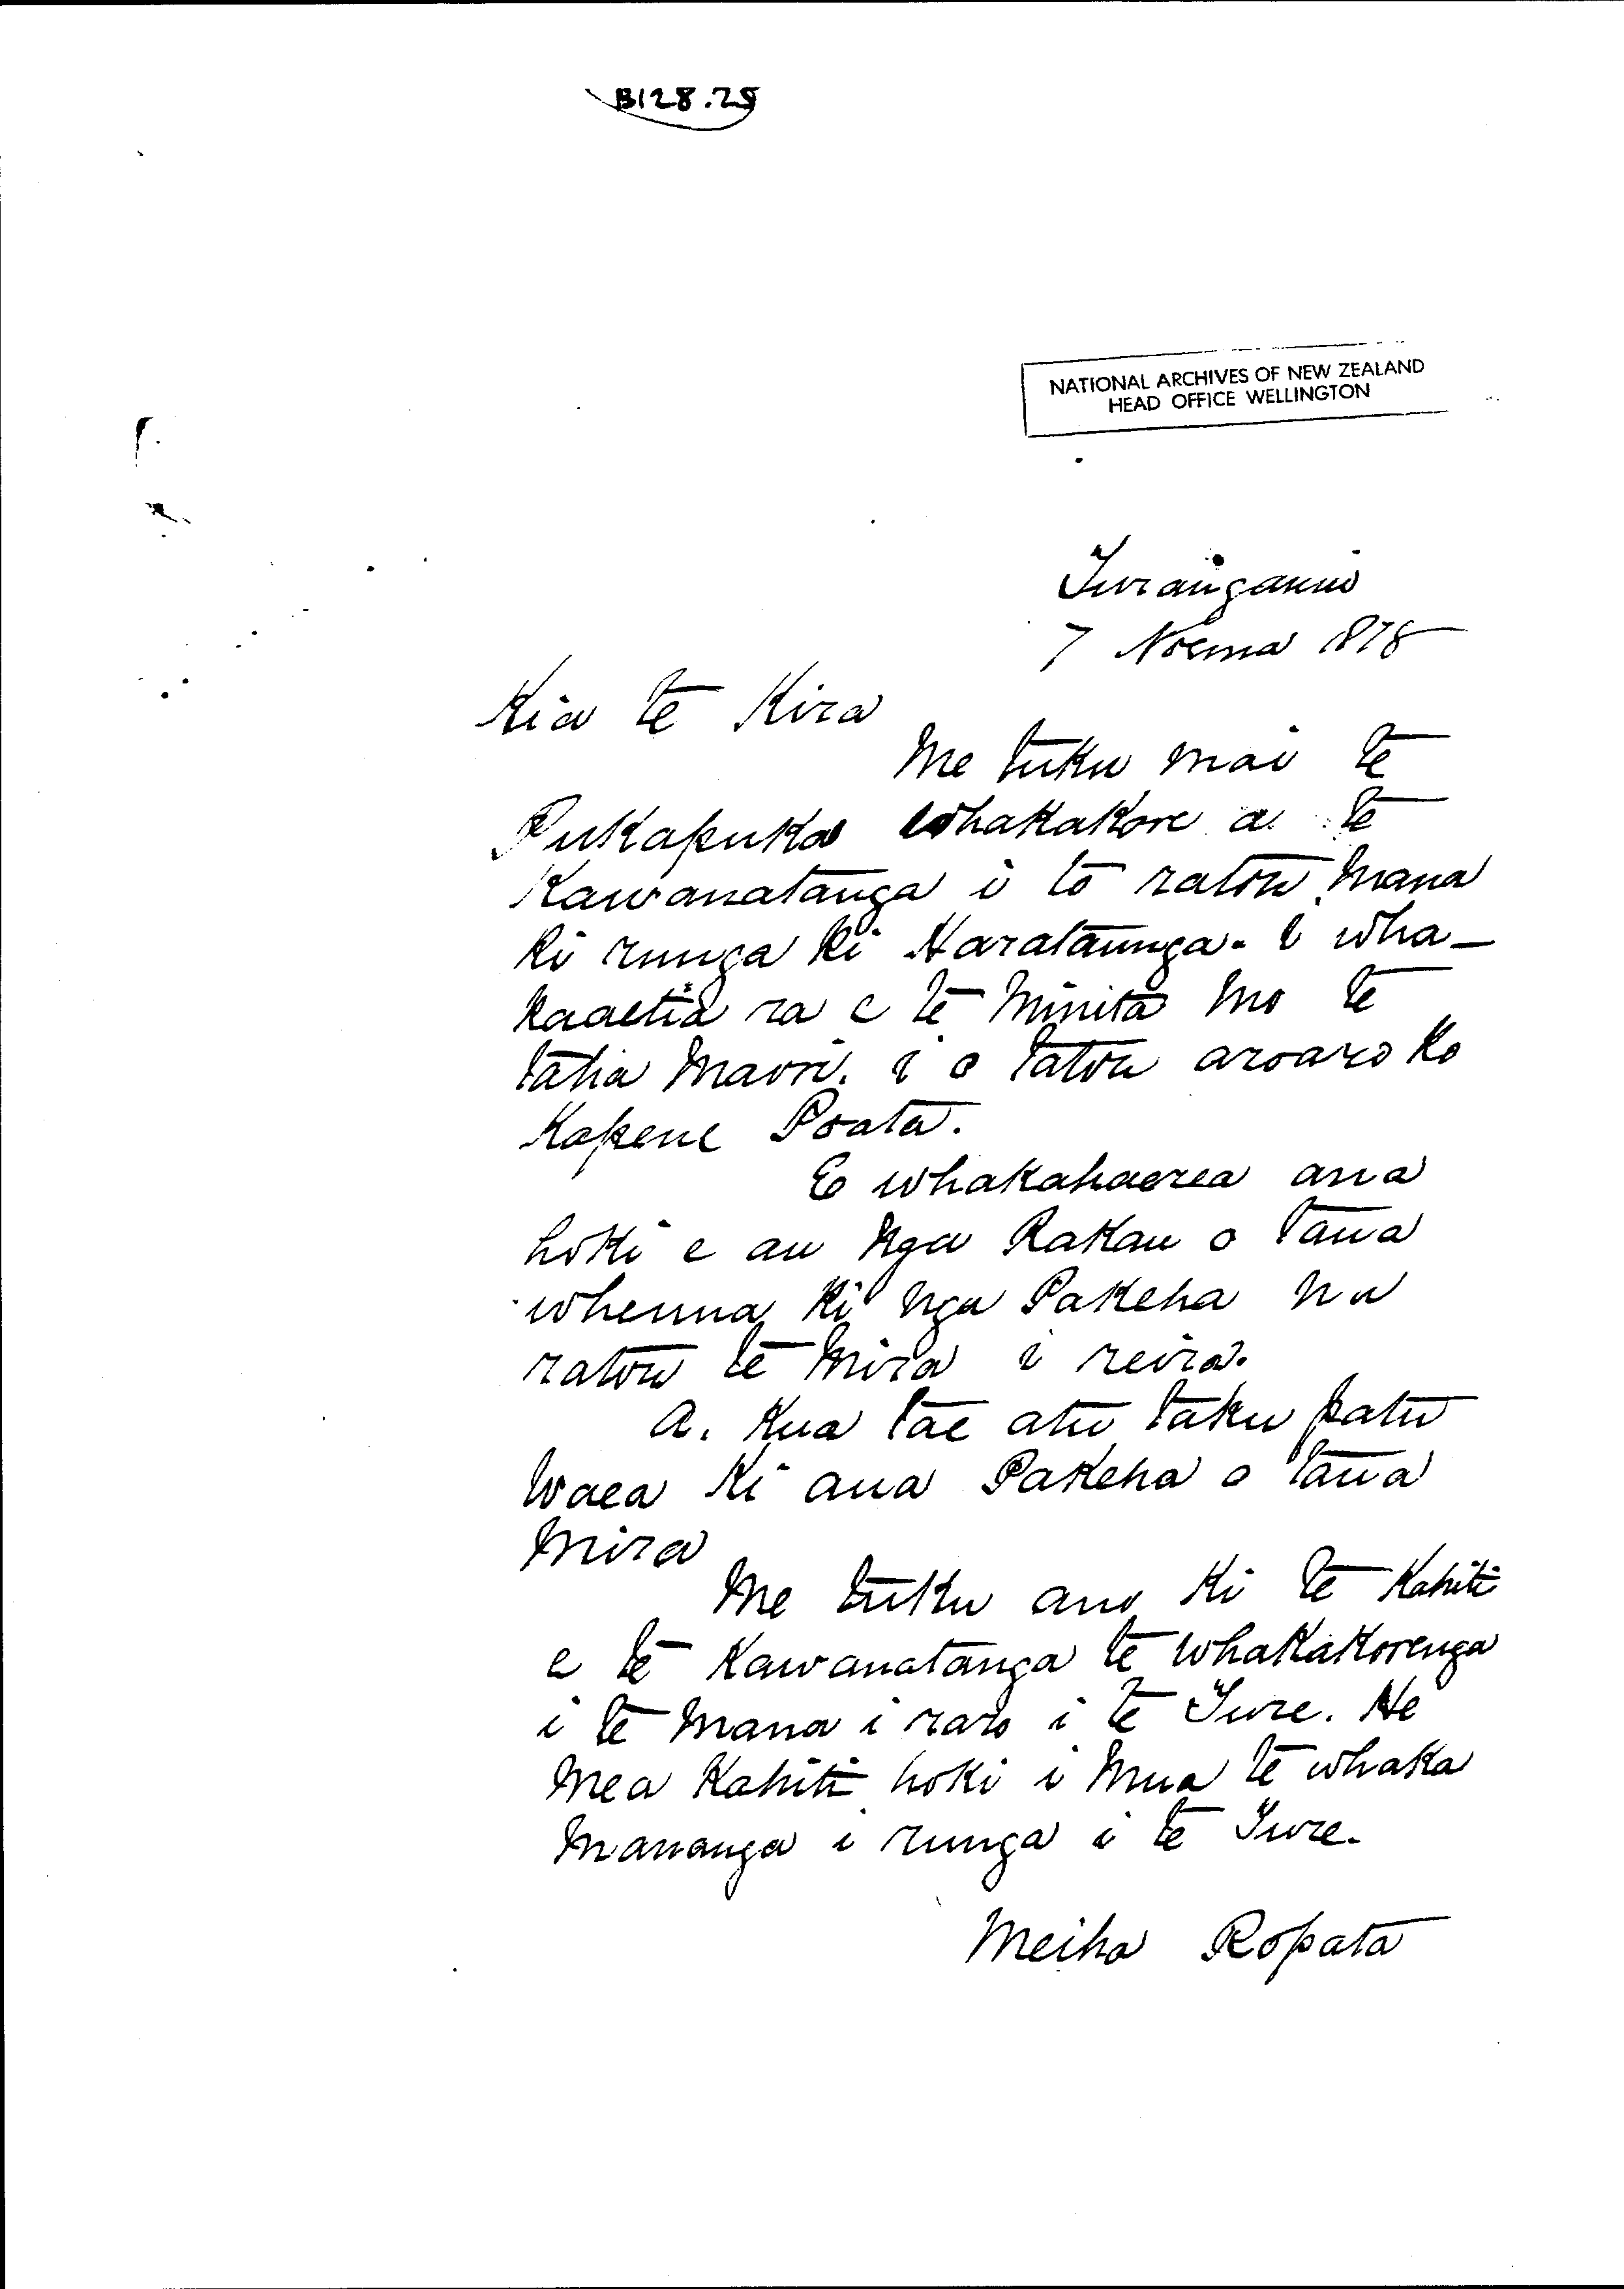 B128.28
NATIONAL ARCHIVES OF NEW ZEALAND
HEAD OFFICE WELLINGTON
Turanganui
7 Noema 1878
Kia te Kira
Me tuku mai te
Pukapuka whakakore a te
Kawanatanga i to ratou mana
ki runga ki Harataunga. i wha-
kaaetia ra e te Minita mo te
taha Maori. i o tatou aroaro ko
Kapene Poata.
E whakahaerea ana
hoki e au nga Rakau o taua
whenua ki nga Pakeha na
ratou te mira i reira.
A. Kua tae atu taku patu
waea ki aua Pakeha o taua
Mira
Me tuku ano ki te Kahiti
e te Kawanatanga te whakakorenga
i te mana i raro i te Ture. He
mea Kahiti hoki i mua te whaka
mananga i runga i te Ture.
Meiha Ropata